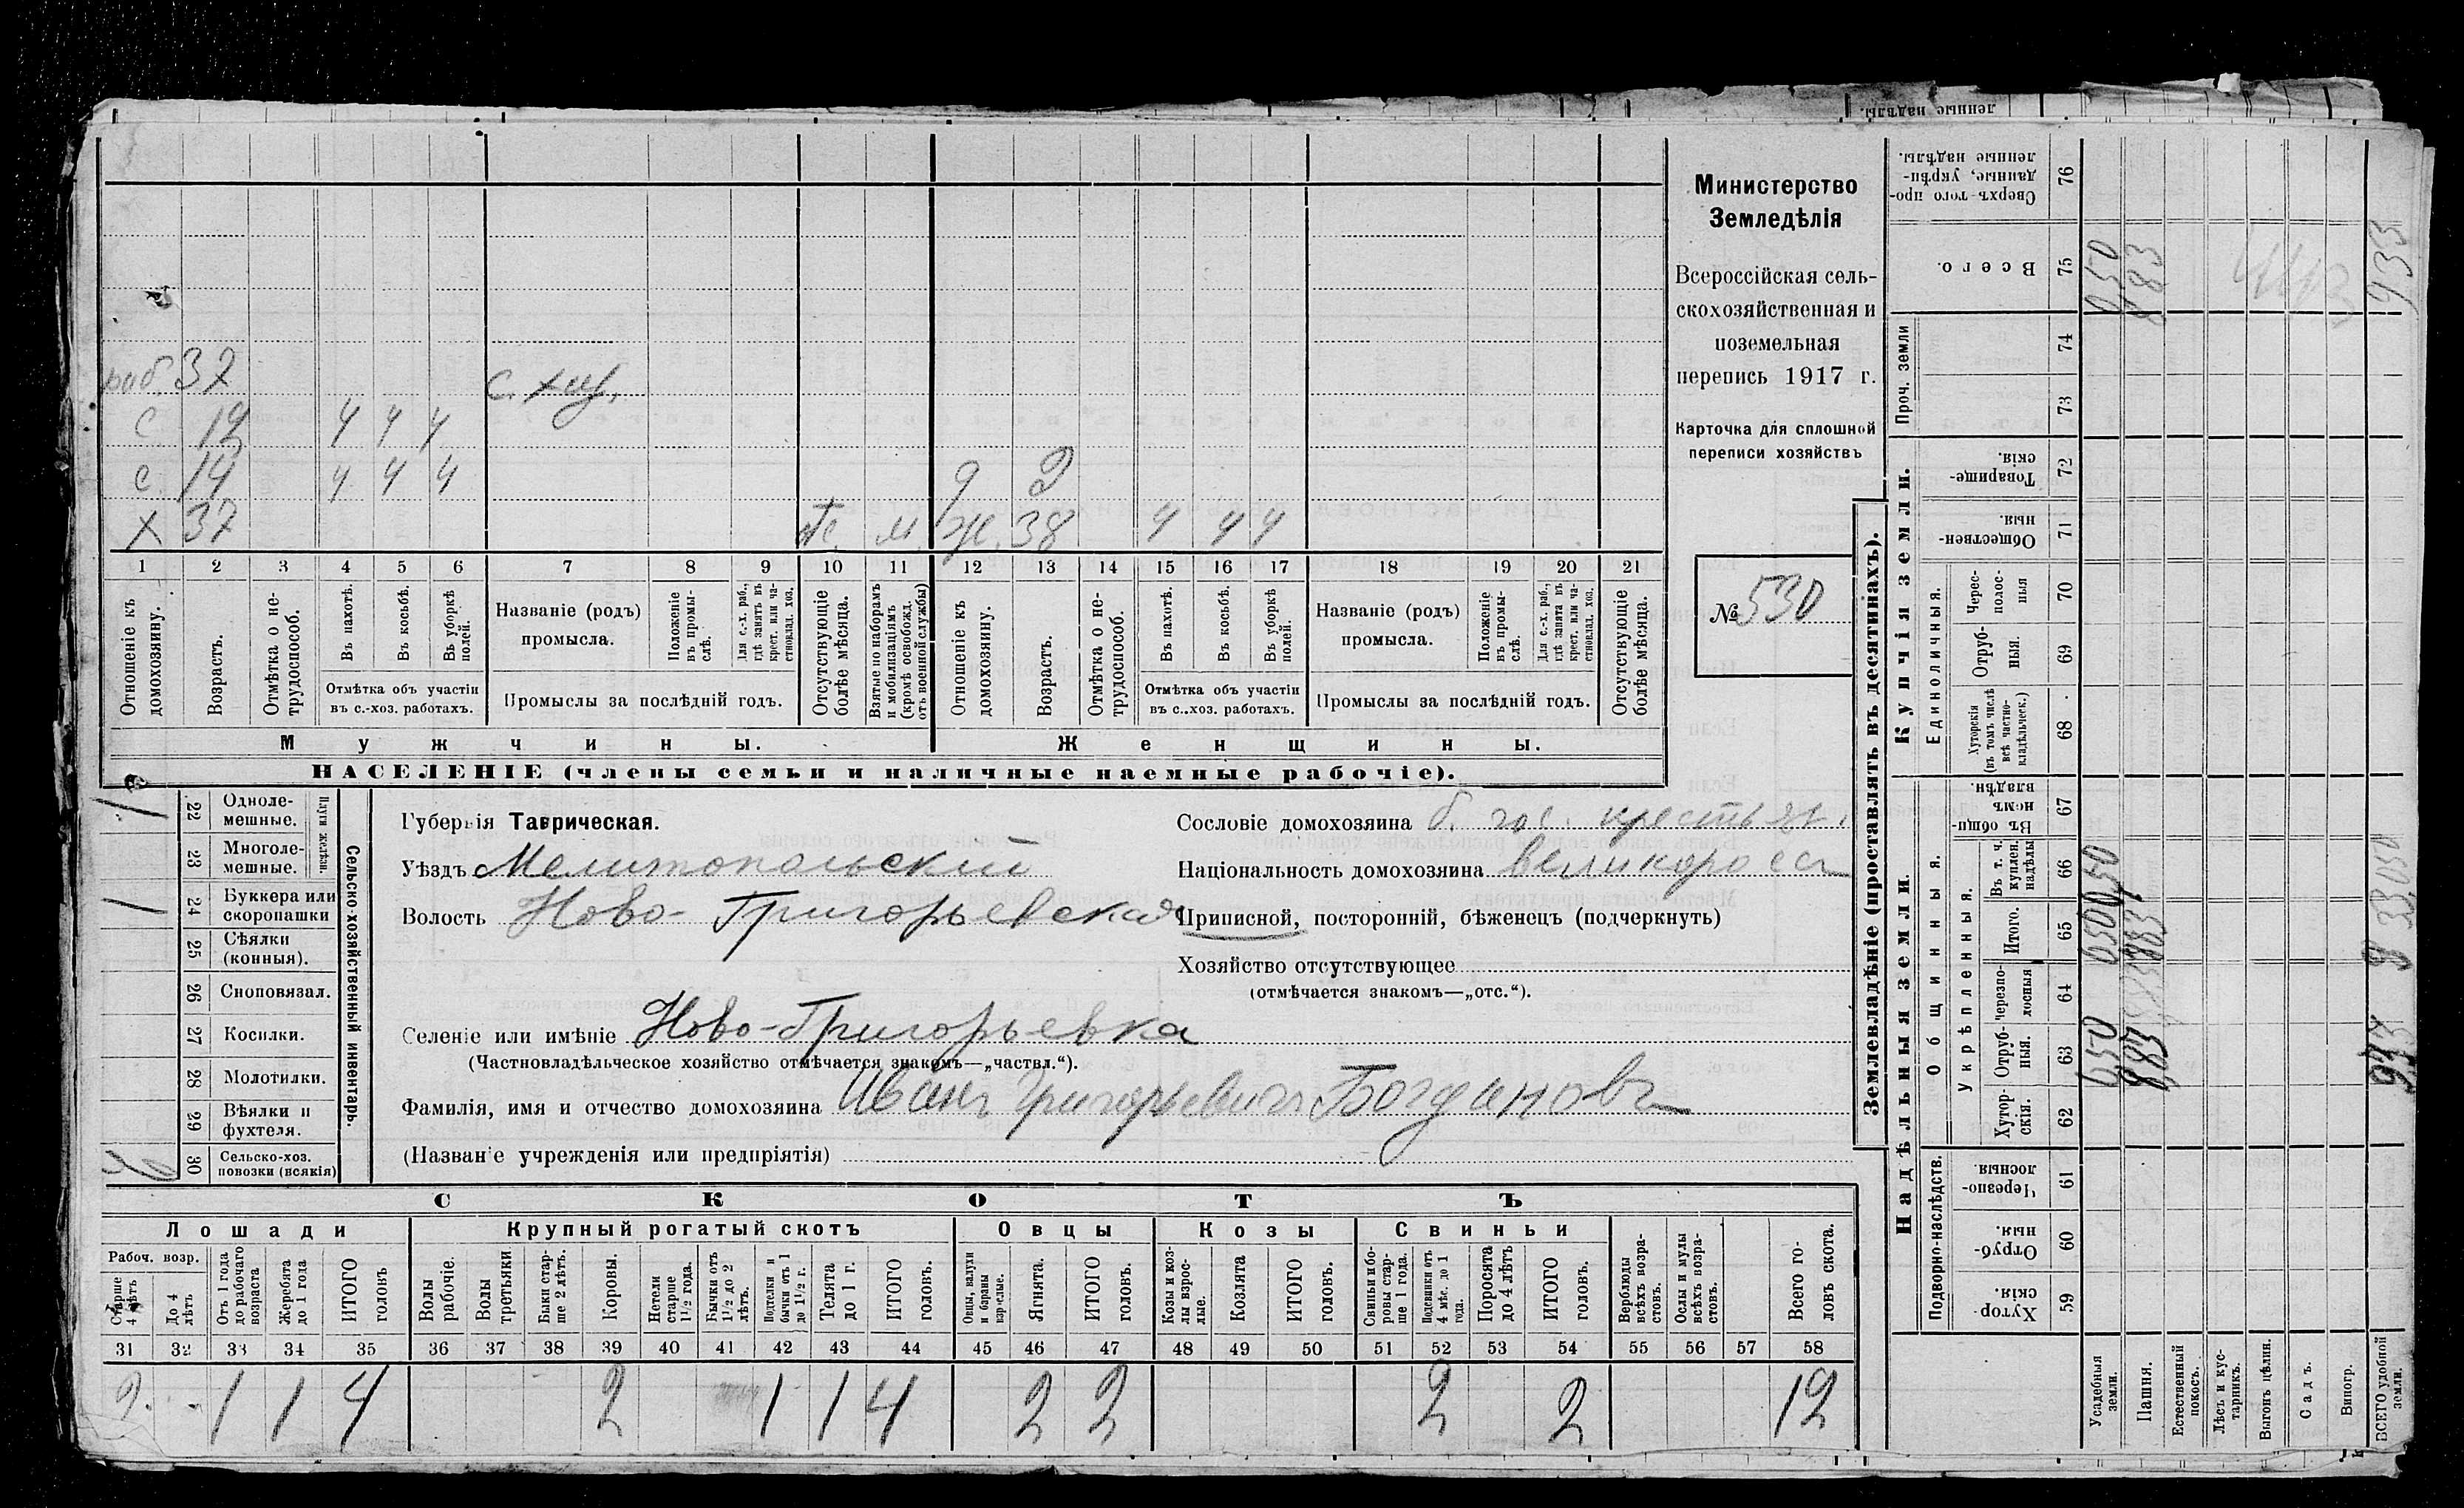 ленные надѣлы.
раб. 37 с. хоз.
с 12 ч ч ч
с 14 ч ч ч д 9
х 37 м. ж. 38 ч ч ч
1 2 3 4 5 6 7 8 9 10 11 12 13 14 15 16 17 18 19 20 21
Отношеніе къ домохозяину.
Возрастъ.
Отмѣтка о нетрудоспособ.
Въ пахотѣ.
Въ косьбѣ.
Въ уборкѣ полей.
Отмѣтка объ участіи
въ с.-хоз. работахъ.
Названіе (родъ)
промысла.
Положеніе въ промыслѣ.
Для с.-х. раб., гдѣ занятъ въ крест. или частновлад. хоз.
Промыслы за послѣдній годъ.
Отсутствующіе болѣе мѣсяца.
Взятые по наборамъ и мобилизаціямъ (кромѣ освобожд. отъ военной службы)
Отношеніе къ домохозяину.
Возрастъ.
Отмѣтка о нетрудоспособ.
Въ пахотѣ.
Въ косьбѣ.
Въ уборкѣ полей.
Отмѣтка объ участіи
въ с.-хоз. работахъ.
Названіе (родъ)
промысла.
Положеніе въ промыслѣ.
Для с.-х. раб., гдѣ занята въ крест. или частновлад. хоз.
Промыслы за послѣдній годъ.
Отсутствующіе болѣе мѣсяца.
Мужчины. Женщины.
НАСЕЛЕНІЕ (члены семьи и наличные наемные рабочіе).
Министерство
Земледѣлія
Всероссійская сель-
скохозяйственная и
поземельная
перепись 1917 г.
Карточка для сплошной
переписи хозяйствъ
№ 530
Сельско-хозяйственный инвентарь.
Плуги желѣзн.
22 Одноле-
мешные. 1
23 Многоле-
мешные.
24 Буккера или
скоропашки 1
25 Сѣялки
(конныя).
26 Сноповязал.
27 Косилки.
28 Молотилки.
29 Вѣялки и
фухтеля.
30 Сельско-хоз.
повозки (всякія)
Губернія Таврическая.
Уѣздъ Мелитопольский
Волость Ново-Григорьевская
Селеніе или имѣніе Ново-Григорьевка
(Частновладѣльческое хозяйство отмѣчается знакомъ—„частвл.“).
Фамилія, имя и отчество домохозяина Иванъ Григорьевичъ Богдановъ
(Названіе учрежденія или предпріятія)
Сословіе домохозяина б. гос. крестьян.
Національность домохозяина великороссъ
Приписной, посторонній, бѣженецъ (подчеркнуть)
Хозяйство отсутствующее
(отмѣчается знакомъ—„отс.“).
СКОТЪ
Лошади Крупный рогатый скотъ Овцы Козы Свиньи
Рабоч. возр.
Старше 4 лѣтъ
До 4 лѣтъ
Отъ 1 года до рабочаго возраста
Жеребята до 1 года
ИТОГО головъ
Волы рабочіе.
Волы третьяки
Быки старше 2 лѣтъ.
Коровы.
Нетели старше 1½ года.
Бычки отъ 1½ до 2 лѣтъ.
Подтелки и бычки отъ 1 до 1½ г.
Телята до 1 г.
ИТОГО головъ.
Овцы, валухи и бараны взрослые.
Ягнята.
ИТОГО головъ.
Козы и козлы взрослые.
Козлята
ИТОГО головъ.
Свиньи и боровы старше 1 года.
Подсвинки отъ 4 мѣс. до 1 года.
Поросята до 4 лѣтъ
ИТОГО головъ.
Верблюды всѣхъ возрастовъ.
Ослы и мулы всѣхъ возрастовъ.
Всего головъ скота.
31 32 33 34 35 36 37 38 39 40 41 42 43 44 45 46 47 48 49 50 51 52 53 54 55 56 57 58
2. 1 1 4 2 1 1 4 2 2 2 2 12
Землевладѣніе (проставлять въ десятинахъ).
Надѣльныя земли. Купчія земли. Проч. земли
Подворно-наслѣдств.
Общинныя.
Укрѣпленныя.
Единоличныя.
59 Хуторскія.
60 Отрубныя.
61 Черезполосныя.
62 Хуторскія.
63 Отрубныя.
64 Черезполосныя
65 Итого.
66 Въ т. ч. куплен. надѣлы
67 Въ общинномъ владѣн.
68 Хуторскія (въ томъ числѣ всѣ частновладѣльческ.)
69 Отрубныя.
70 Чересполосныя
71 Общественныя.
72 Товарищескія.
73
74
75 Всего.
76 Сверхъ того проданные, укрѣпленные надѣлы.
Усадебныя земли. 050 050 050 050
Пашня. 883 883 883
Естественный покосъ.
Лѣсъ и кустарникъ.
Выгонъ цѣлин.
Садъ.
Виногр.
ВСЕГО удобной земли. 933 933